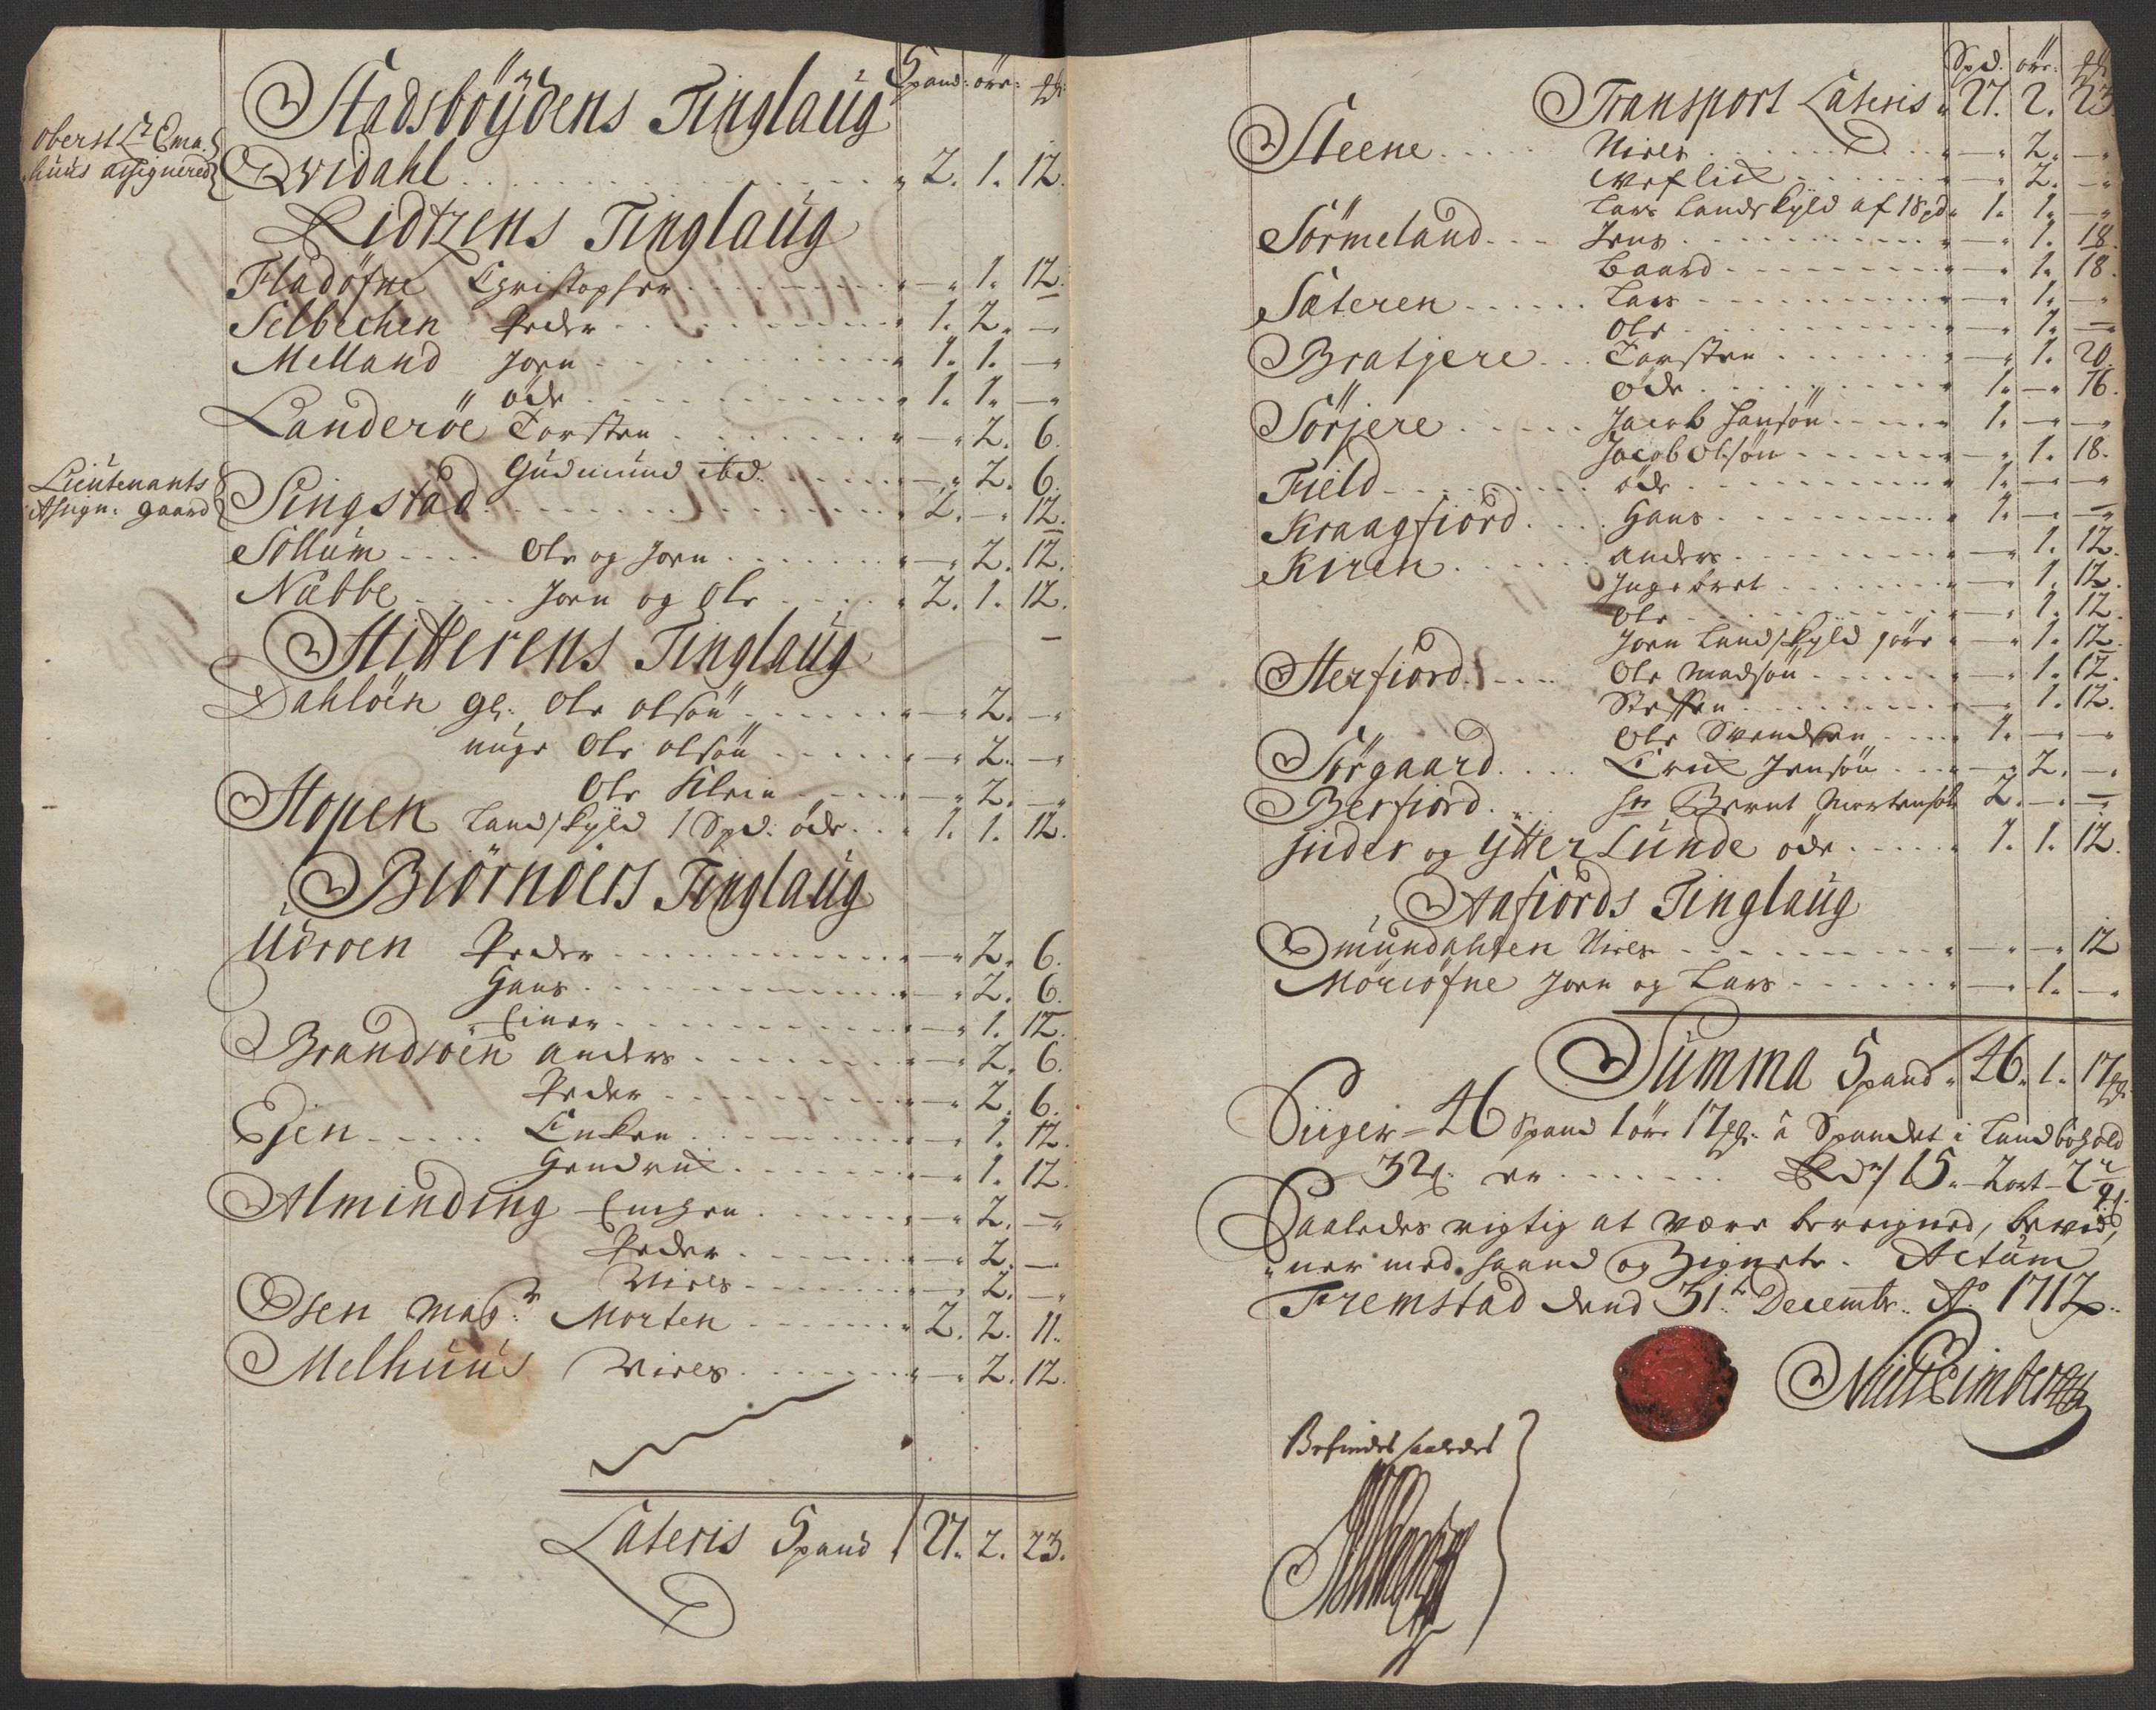 Spand: öre: ℔:
Stadsböÿdens Tinglaug
Oberst Lt. Ema.
huus assignered
Qvidahl . . . 2. 1. 12.
Ridtzens Tinglaug
Fladöfne Christopher . . . — 1. 12.
Selbechen Peder . . . 1. 2. —
Melland Joen . . . 1. 1. —
öde . . . 1. 1. —
Landeröe Torsten . . . — 2. 6.
Gudmund ibd. . . . — 2. 6.
Lieutenants
Assign: gaard
Singstad . . . 2. — 12.
Sollum . . . Ole og Joen . . . — 2. 12.
Nabbe . . . Joen og Ole . . . 2. 1. 12.
Hitterens Tinglaug
Dahlöen gl. Ole Olsön . . . — 2. —
unge Ole Olsön . . . — 2. —
Ole Klein . . . — 2. —
Hopen Landskyld 1 Spd: öde . . . 1. 1. 12.
Biörnöers Tinglaug
Udroen Peder . . . — 2. 6.
Hans . . . — 2. 6.
Einer . . . — 1. 12.
Brandsöen Anders . . . — 2. 6.
Peder . . . — 2. 6.
Ejen . . . Encken . . . — 1. 12.
Hendrich . . . — 1. 12.
Alminding Enchen . . . — 2. —
Peder . . . — 2. —
Niels . . . — 2. —
Osen Morten . . . 2. 2. 11.
Melhuus Niels . . . — 2. 12.
Lateris Spand 27. 2. 23.
Spd. öre. ℔
Transport Lateris 27. 2. 23
Steene . . . Niels . . . — 2. —
. . . — 2. —
Lars Landskyld af 1 Spd. 1. 1. —
Sörmeland . . . Jens . . . — 1. 18.
Baard . . . — 1. 18.
Sæteren . . . Lars . . . — 1. —
Ole . . . — 1. —
Bratjere . . . Torsten . . . — 1. 20.
öde . . . 1. — 16.
Sörjere . . . Jacob Hansön . . . 1. — —
Jacob Olsön . . . — 1. 18.
Field . . . öde . . . 1. — —
Kraagfiord . . . Hans . . . 1. — —
Kiren . . . Anders . . . — 1. 12.
Ingebret . . . — 1. 12.
Ole . . . — 1. 12.
Joen Landskyld 1 öre — 1. 12.
Sterfiord . . . Ole Madsön . . . — 1. 12.
Steffen . . . — 1. 12.
Ole Svendsen . . . 1. — —
Sörgaard . . . Erich Jensön . . . — 2. —
Berfiord . . . Hr Bernt Mortensön 2. — —
Inder og Ytter Lunde öde . . . 1. 1. 12.
Aafiords Tinglaug
Omundahlen Niels . . . — — 12
Möriöfne Joen og Lars . . . — 1. —
Summa Spand 46. 1. 17 ℔.
Siiger 46 Spand 1 öre 17 ℔: â Spandet i Landbohold
32 ß: er . . . Rdr 15. 2 ort 2
Saaledes rigtig at være beregned, bevid,
ner med Haand og Zignete. Actum
Fremstad dend 31te Decembr. Ao 1712.
Befindes saaledes